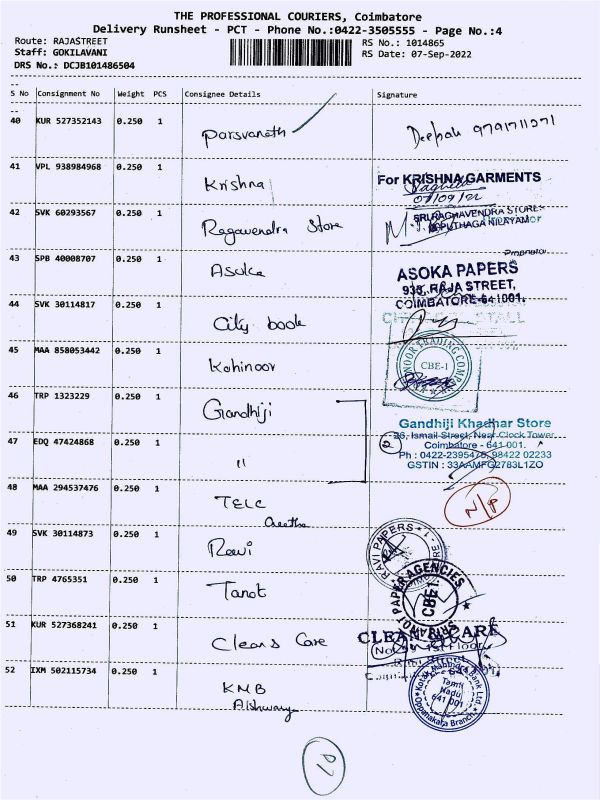 THE PROFESSIONAL COURIERS, Coimbatore
Delivery Runsheet - PCT - Phone No.:0422-3505555 - Page No.:4
Route: RAJASTREET
RS No.: 1014865
Staff: GOKILAVANI
RS Date: 07-Sep-2022
DRS No.: DCJB101486504
S No Consignment No Weight PCS Consignee Details Signature
40 KUR 527352143 0.250 1 Parsvanath Deepak 9791711271
41 VPL 938984968 0.250 1 Krishna For KRISHNA GARMENTS
07/09/22
42 SVK 60293567 0.250 1 Ragavendra Store SRI RAGHAVENDRA STORE
PUTHAGA NILAYAM
Proprietor
43 SPB 40008707 0.250 1 Asoka ASOKA PAPERS
938, RAJA STREET,
COIMBATORE-641 001.
44 SVK 30114817 0.250 1 City book
STALL
45 MAA 858053442 0.250 1 Kohinoor KOHINOOR TRADING COMPANY
CBE-1
46 TRP 1323229 0.250 1 Gandhiji Gandhiji Khadhar Store
26, Ismail Street, Near Clock Tower
47 EDQ 47424868 0.250 1 " 2 Coimbatore - 641 001.
Ph : 0422-2395475, 98422 02233
GSTIN : 33AAMFG2783L1ZO
48 MAA 294537476 0.250 1 TELC N/P
49 SVK 30114873 0.250 1 Ravi RAVI PAPERS
50 TRP 4765351 0.250 1 Tanot PAPER AGENCIES
CBE-1
51 KUR 527368241 0.250 1 Cleans Care CLEAN & CARE
Floor
52 IXM 502115734 0.250 1 KMB Kotak Mahindra Bank Ltd
Aishwarya Tamil
Nadu
641 001
Oppanakara Branch
10